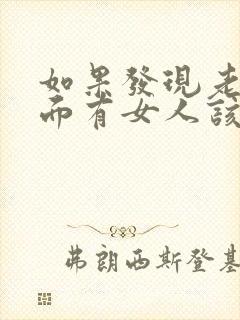 如果發現老
而有女人該
弗朗西斯登基